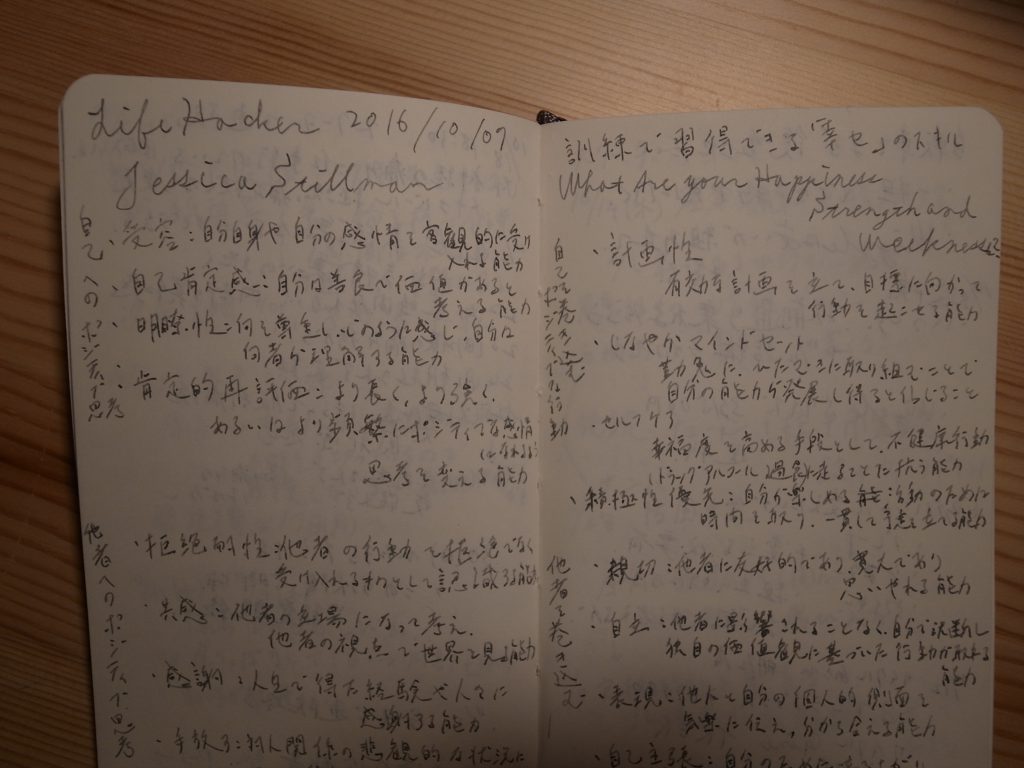 Life Hacker 2016/10/07
Jessica Stillman
自己へのポジティブ思考
・受容：自分自身や自分の感情を客観的に受け
入れる能力
・自己肯定感：自分は善良で価値があると
考える能力
・明瞭性：何を重視し、どのように感じ、自分は
何者か理解する能力
・肯定的再評価：より長く、より強く、
あるいはより頻繁にポジティブな感情
になれるよう
思考を変える能力
他者へのポジティブ思考
・拒絶耐性：他者の行動を拒絶でなく
受け入れるものとして認識する能力
・共感：他者の立場になって考え、
他者の視点で世界を見る能力
・感謝：人生で得た経験や人々に
感謝する能力
・手放す：対人関係の悲観的な状況に
訓練で習得できる「幸せ」のスキル
What Are your Happiness
Strength and
Weeknesses?
自己を巻き込む
ポジティブな行動
・計画性
有効な計画を立て、目標に向かって
行動を起こせる能力
・しなやかマインドセット
勤勉に、ひたむきに取り組むことで
自分の能力が発展し得ると信じること
・セルフケア
幸福度を高める手段として、不健康行動
(ドラッグ アルコール 過食)に走ることに抗う能力
・積極性優先：自分が楽しめる活動のために
時間を取り、一貫して予定を立てる能力
他者を巻き込む
・親切：他者に友好的であり、寛大であり
思いやれる能力
・自立：他者に影響されることなく、自分で決断し
独自の価値観に基づいた行動が取れる
能力
・表現：他人と自分の個人的側面を
気楽に伝え、分かち合える能力
・自己主張：自分の